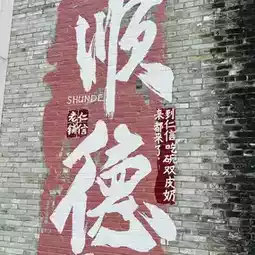 顺
SHUNDE
德
仁信
老铺
到仁信吃碗双皮奶
来都来了，